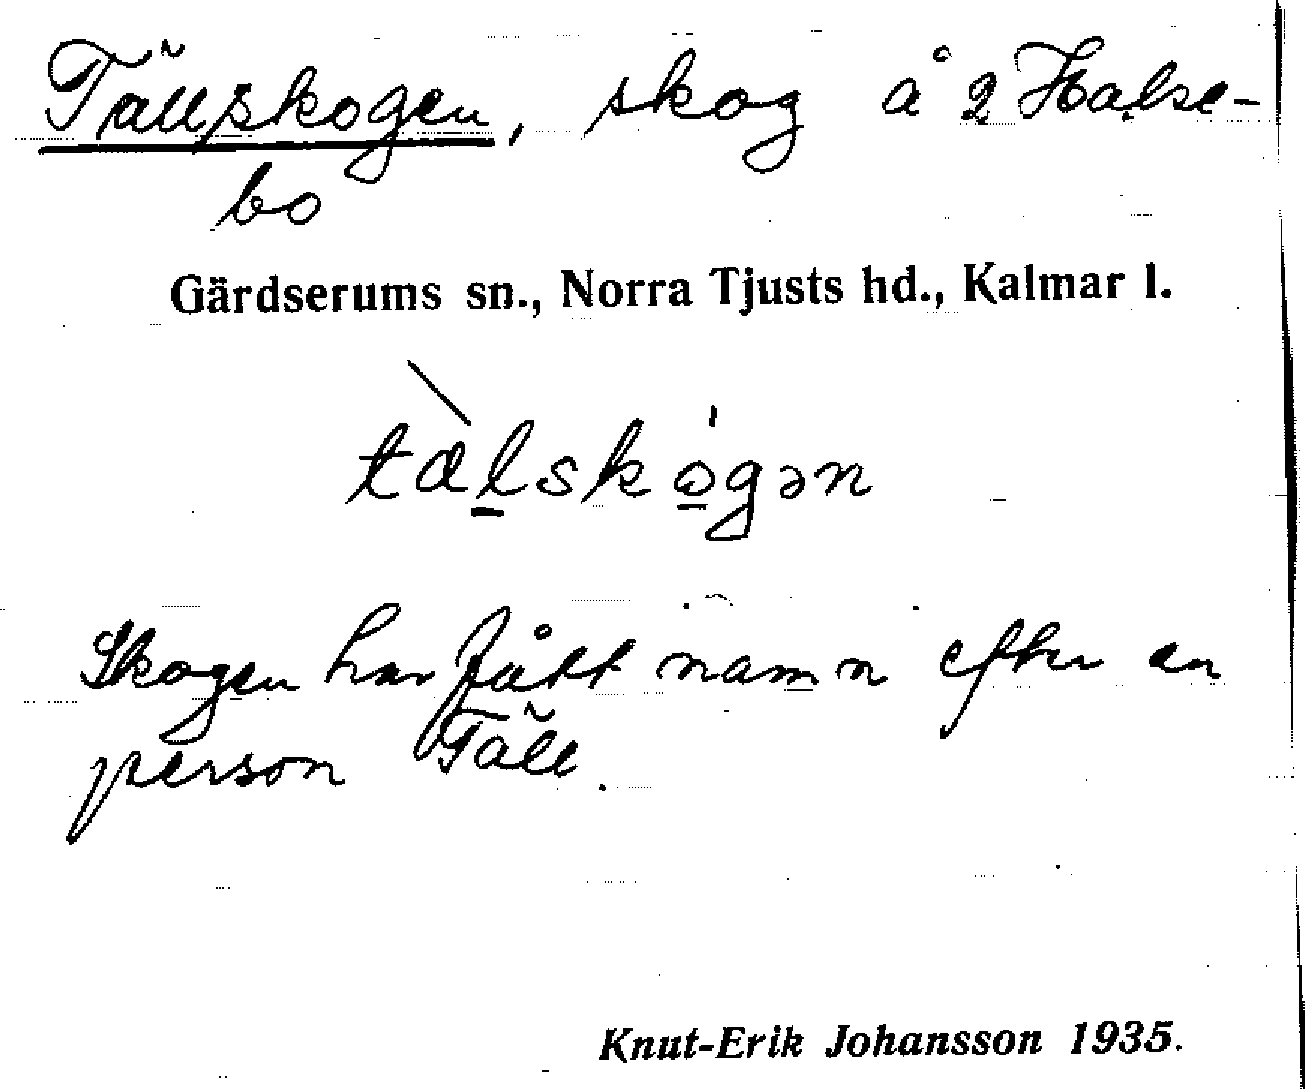 Tällskogen, skog å 2 Halse-
bo
Gärdserums sn., Norra Tjusts hd., Kalmar l.
tælskògən
Skogen har fått namn efter en
person Täll.
Knut-Erik Johansson 1935.